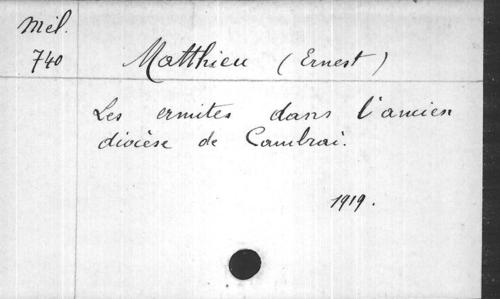 Mél.
740
Matthieu (Ernest)
Les ermites dans l'ancien
diocèse de Cambrai.
1919.